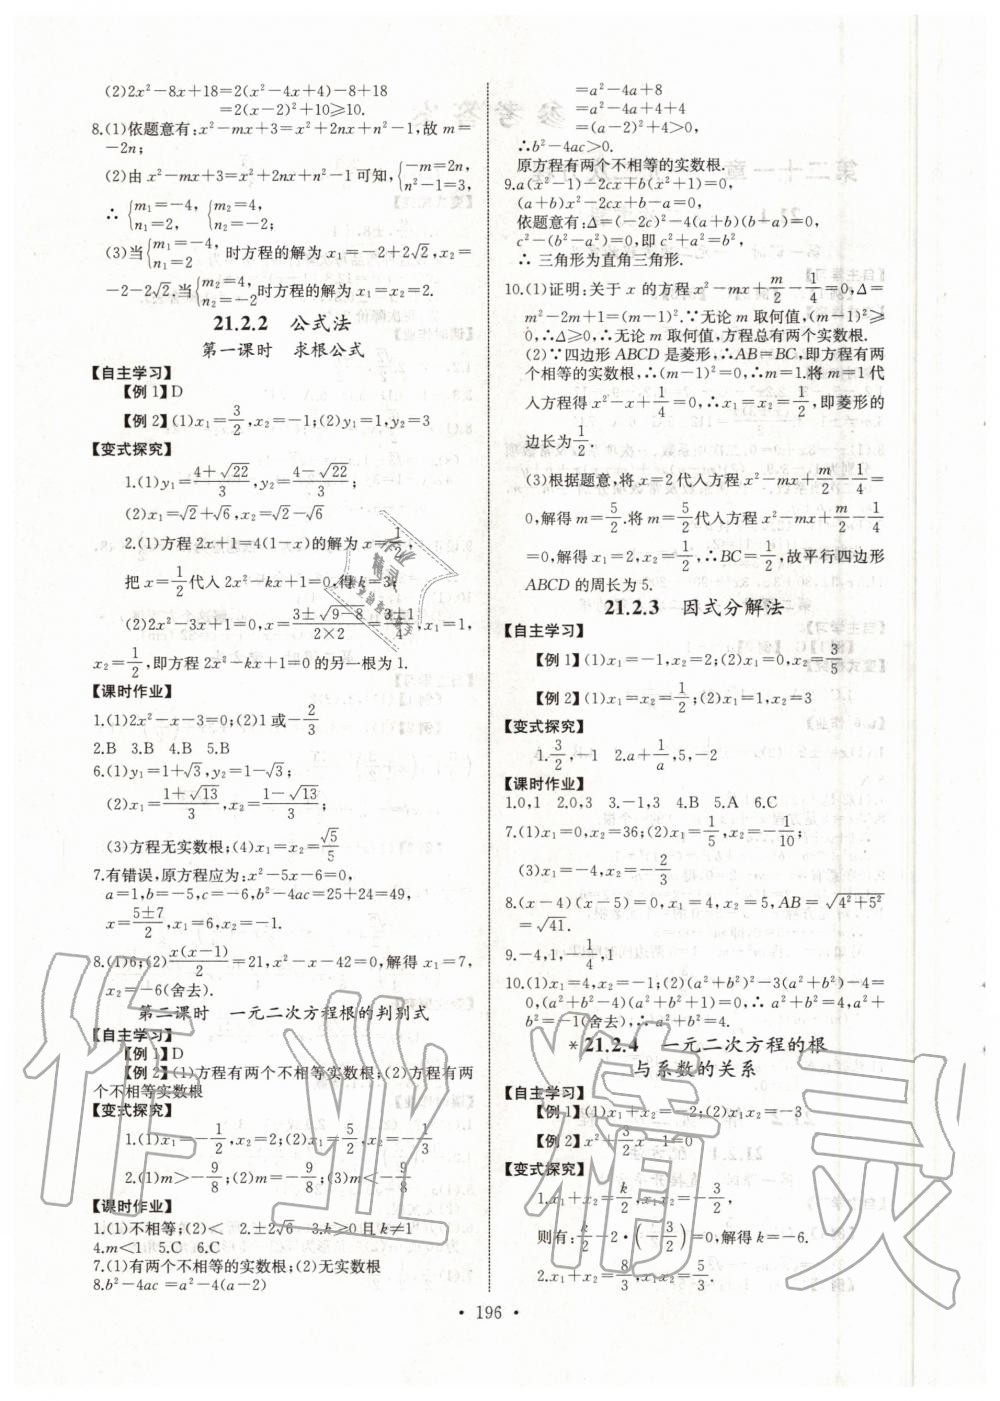 (2)2x²−8x+18=2(x²−4x+4)−8+18
=2(x−2)²+10≥10.
8.(1)依题意有:x²−mx+3=x²+2nx+n²−1,故 m=
−2n;
(2)由 x²−mx+3=x²+2nx+n²−1可知,{−m=2n, n²−1=3,
∴ {m₁=−4, n₁=2, {m₂=4, n₂=−2;
(3)当{m₁=−4, n₁=2 时方程的解为 x₁=−2+2√2,x₂=
−2−2√2.当{m₂=4, n₂=−2时方程的解为 x₁=x₂=2.
21.2.2 公式法
第一课时 求根公式
【自主学习】
【例1】D
【例2】(1)x₁=3/2,x₂=−1;(2)y₁=1,y₂=3
【变式探究】
1.(1)y₁=(4+√22)/3,y₂=(4−√22)/3
(2)x₁=√2+√6,x₂=√2−√6
2.(1)方程2x+1=4(1−x)的解为 x=1/2.
把 x=1/2代入2x²−kx+1=0,得 k=3;
(2)2x²−3x+1=0,x=(3±√(9−8))/(2×2)=(3±1)/4,x₁=1,
x₂=1/2,即方程2x²−kx+1=0的另一根为1.
【课时作业】
1.(1)2x²−x−3=0;(2)1或−2/3
2.B 3.B 4.B 5.B
6.(1)y₁=1+√3,y₂=1−√3;
(2)x₁=(1+√13)/3,x₂=(1−√13)/3;
(3)方程无实数根;(4)x₁=x₂=√5/5
7.有错误,原方程应为:x²−5x−6=0,
a=1,b=−5,c=−6,b²−4ac=25+24=49,
x=(5±7)/2,x₁=6,x₂=−1.
8.(1)6;(2)x(x−1)/2=21,x²−x−42=0,解得 x₁=7,
x₂=−6(舍去).
第二课时 一元二次方程根的判别式
【自主学习】
【例1】D
【例2】(1)方程有两个不相等实数根;(2)方程有两
个不相等实数根
【变式探究】
1.(1)x₁=−1/2,x₂=2;(2)x₁=5/2,x₂=1
2.(1)m>−9/8;(2)m=−9/8;(3)m<−9/8
【课时作业】
1.(1)不相等;(2)< 2.±2√6 3.k≥0且 k≠1
4.m<1 5.C 6.C
7.(1)有两个不相等的实数根;(2)无实数根
8.b²−4ac=a²−4(a−2)
=a²−4a+8
=a²−4a+4+4
=(a−2)²+4>0,
∴b²−4ac>0.
原方程有两个不相等的实数根.
9.a(x²−1)−2cx+b(x²+1)=0,
(a+b)x²−2cx+b−a=0,
依题意有:Δ=(−2c)²−4(a+b)(b−a)=0,
c²−(b²−a²)=0,即 c²+a²=b²,
∴ 三角形为直角三角形.
10.(1)证明:关于 x 的方程 x²−mx+m/2−1/4=0,Δ=
m²−2m+1=(m−1)².∵无论 m 取何值,(m−1)²≥
0,∴Δ≥0,∴无论 m 取何值,方程总有两个实数根.
(2)∵四边形ABCD是菱形,∴AB=BC,即方程有两
个相等的实数根,∴(m−1)²=0,∴m=1.将 m=1代
入方程得 x²−x+1/4=0,∴x₁=x₂=1/2,即菱形的
边长为1/2.
(3)根据题意,将 x=2代入方程 x²−mx+m/2−1/4=
0,解得 m=5/2.将 m=5/2代入方程 x²−mx+m/2−1/4
=0,解得 x₁=2,x₂=1/2,∴BC=1/2,故平行四边形
ABCD的周长为5.
21.2.3 因式分解法
【自主学习】
【例1】(1)x₁=−1,x₂=2;(2)x₁=0,x₂=3/5
【例2】(1)x₁=x₂=1/2;(2)x₁=1,x₂=3
【变式探究】
1.3/2,−1 2.a+1/a,5,−2
【课时作业】
1.0,1 2.0,3 3.−1,3 4.B 5.A 6.C
7.(1)x₁=0,x₂=36;(2)x₁=1/5,x₂=−1/10;
(3)x₁=−4,x₂=−2/3
8.(x−4)(x−5)=0,x₁=4,x₂=5,AB=√(4²+5²)
=√41.
9.−4,1,−1/4,1
10.(1)x₁=4,x₂=−1;(2)(a²+b²)²−3(a²+b²)−4=
0,(a²+b²−4)(a²+b²+1)=0,∴a²+b²=4,a²+
b²=−1(舍去),∴a²+b²=4.
*21.2.4 一元二次方程的根
与系数的关系
【自主学习】
【例1】(1)x₁+x₂=−2;(2)x₁x₂=−3
【例2】x²+3/2x−1=0
【变式探究】
1.x₁+x₂=k/2,x₁x₂=−3/2,
则有:k/2−2·(−3/2)=0,解得 k=−6.
2.x₁+x₂=8/3,x₁x₂=5/3.
• 196 •
作业精灵